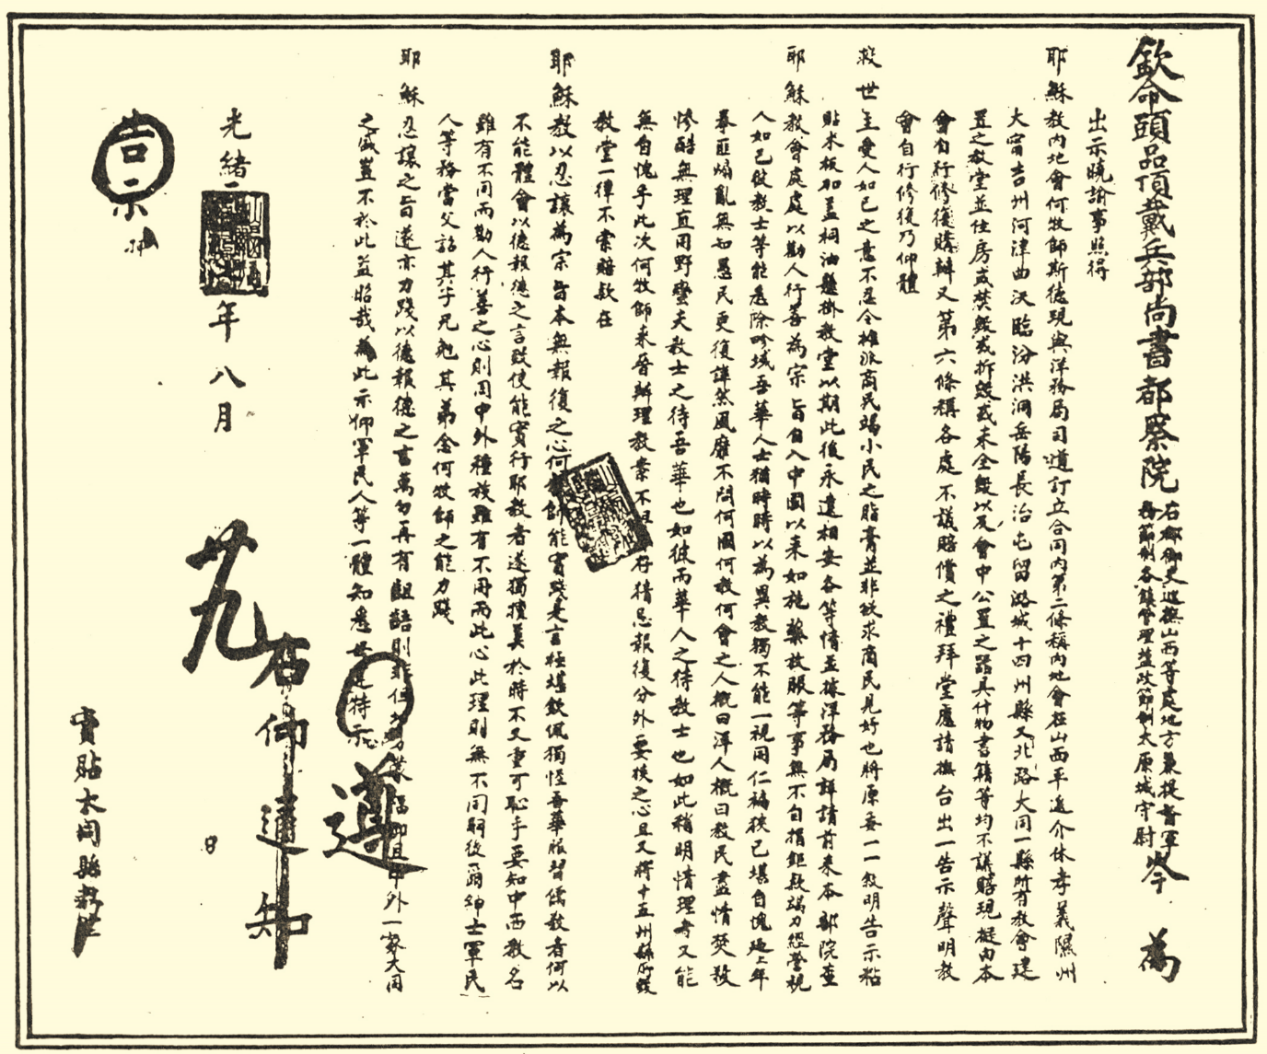 欽命頭品頂戴兵部尚書都察院右都御史巡撫山西等處地方兼提督軍務節制各鎮管理鹽政節制太原城守尉岑 為
出示曉諭事照得
耶穌教內地會何牧師斯德現與洋務局司道訂立合同內第二條稱內地會在山西平遙介休孝義隰州
大甯吉州河津曲沃臨汾洪洞岳陽長治屯留潞城十四州縣又北路大同一縣所有教會建
置之教堂並住房或焚毀或拆毀或未全毀以及會中公置之器具什物書籍等均不議賠現擬由本
會自行修復購辦又第六條稱各處不議賠償之禮拜堂應請撫台出一告示聲明教
會自行修復乃仰體
救世主愛人如己之意不忍令攤派商民竭小民之脂膏並非欲求商民見好也將原委一一敘明告示粘
貼木板加蓋桐油懸掛教堂以期此後永遠相安各等情並據洋務局詳請前來本部院查
耶穌教會處處以勸人行善為宗旨自入中國以來如施藥放賑等事無不自捐鉅款竭力經營視
人如己傚教士等能悉除畛域吾華人士猶時時以為異教獨不能一視同仁褊狹已堪自愧迺上年
拳匪煽亂無知愚民更復譁然風靡不問何國何教何會之人概曰洋人概曰教民盡情焚殺
慘酷無理直同野蠻夫教士之待吾華也如彼而華人之待教士也如此稍明情理者又能
無自愧乎此次何牧師來晉辦理教案不但 存猜忌報復分外要挾之心且又將十五州縣所毀
教堂一律不索賠款在
耶穌教以忍讓為宗旨本無報復之心何 師能實踐是言極堪欽佩獨怪吾華服習儒教者何以
不能體會以德報德之言致使能實行耶教者遂獨擅美於時不又重可恥乎要知中西教名
雖有不同而勸人行善之心則同中外種族雖有不同而此心此理則無不同嗣後爾紳士軍民
人等務當父詔其子兄勉其弟念何牧師之能力踐
耶穌忍讓之旨遂亦力踐以德報德之言萬勿再有齟齬則非但 蒙福即且中外一家大同
之盛豈不於此益昭哉為此示仰軍民人等一體知悉 遵特示
遵
右仰通知
光緒 年八月 廿九日
告示
實貼太同縣教堂